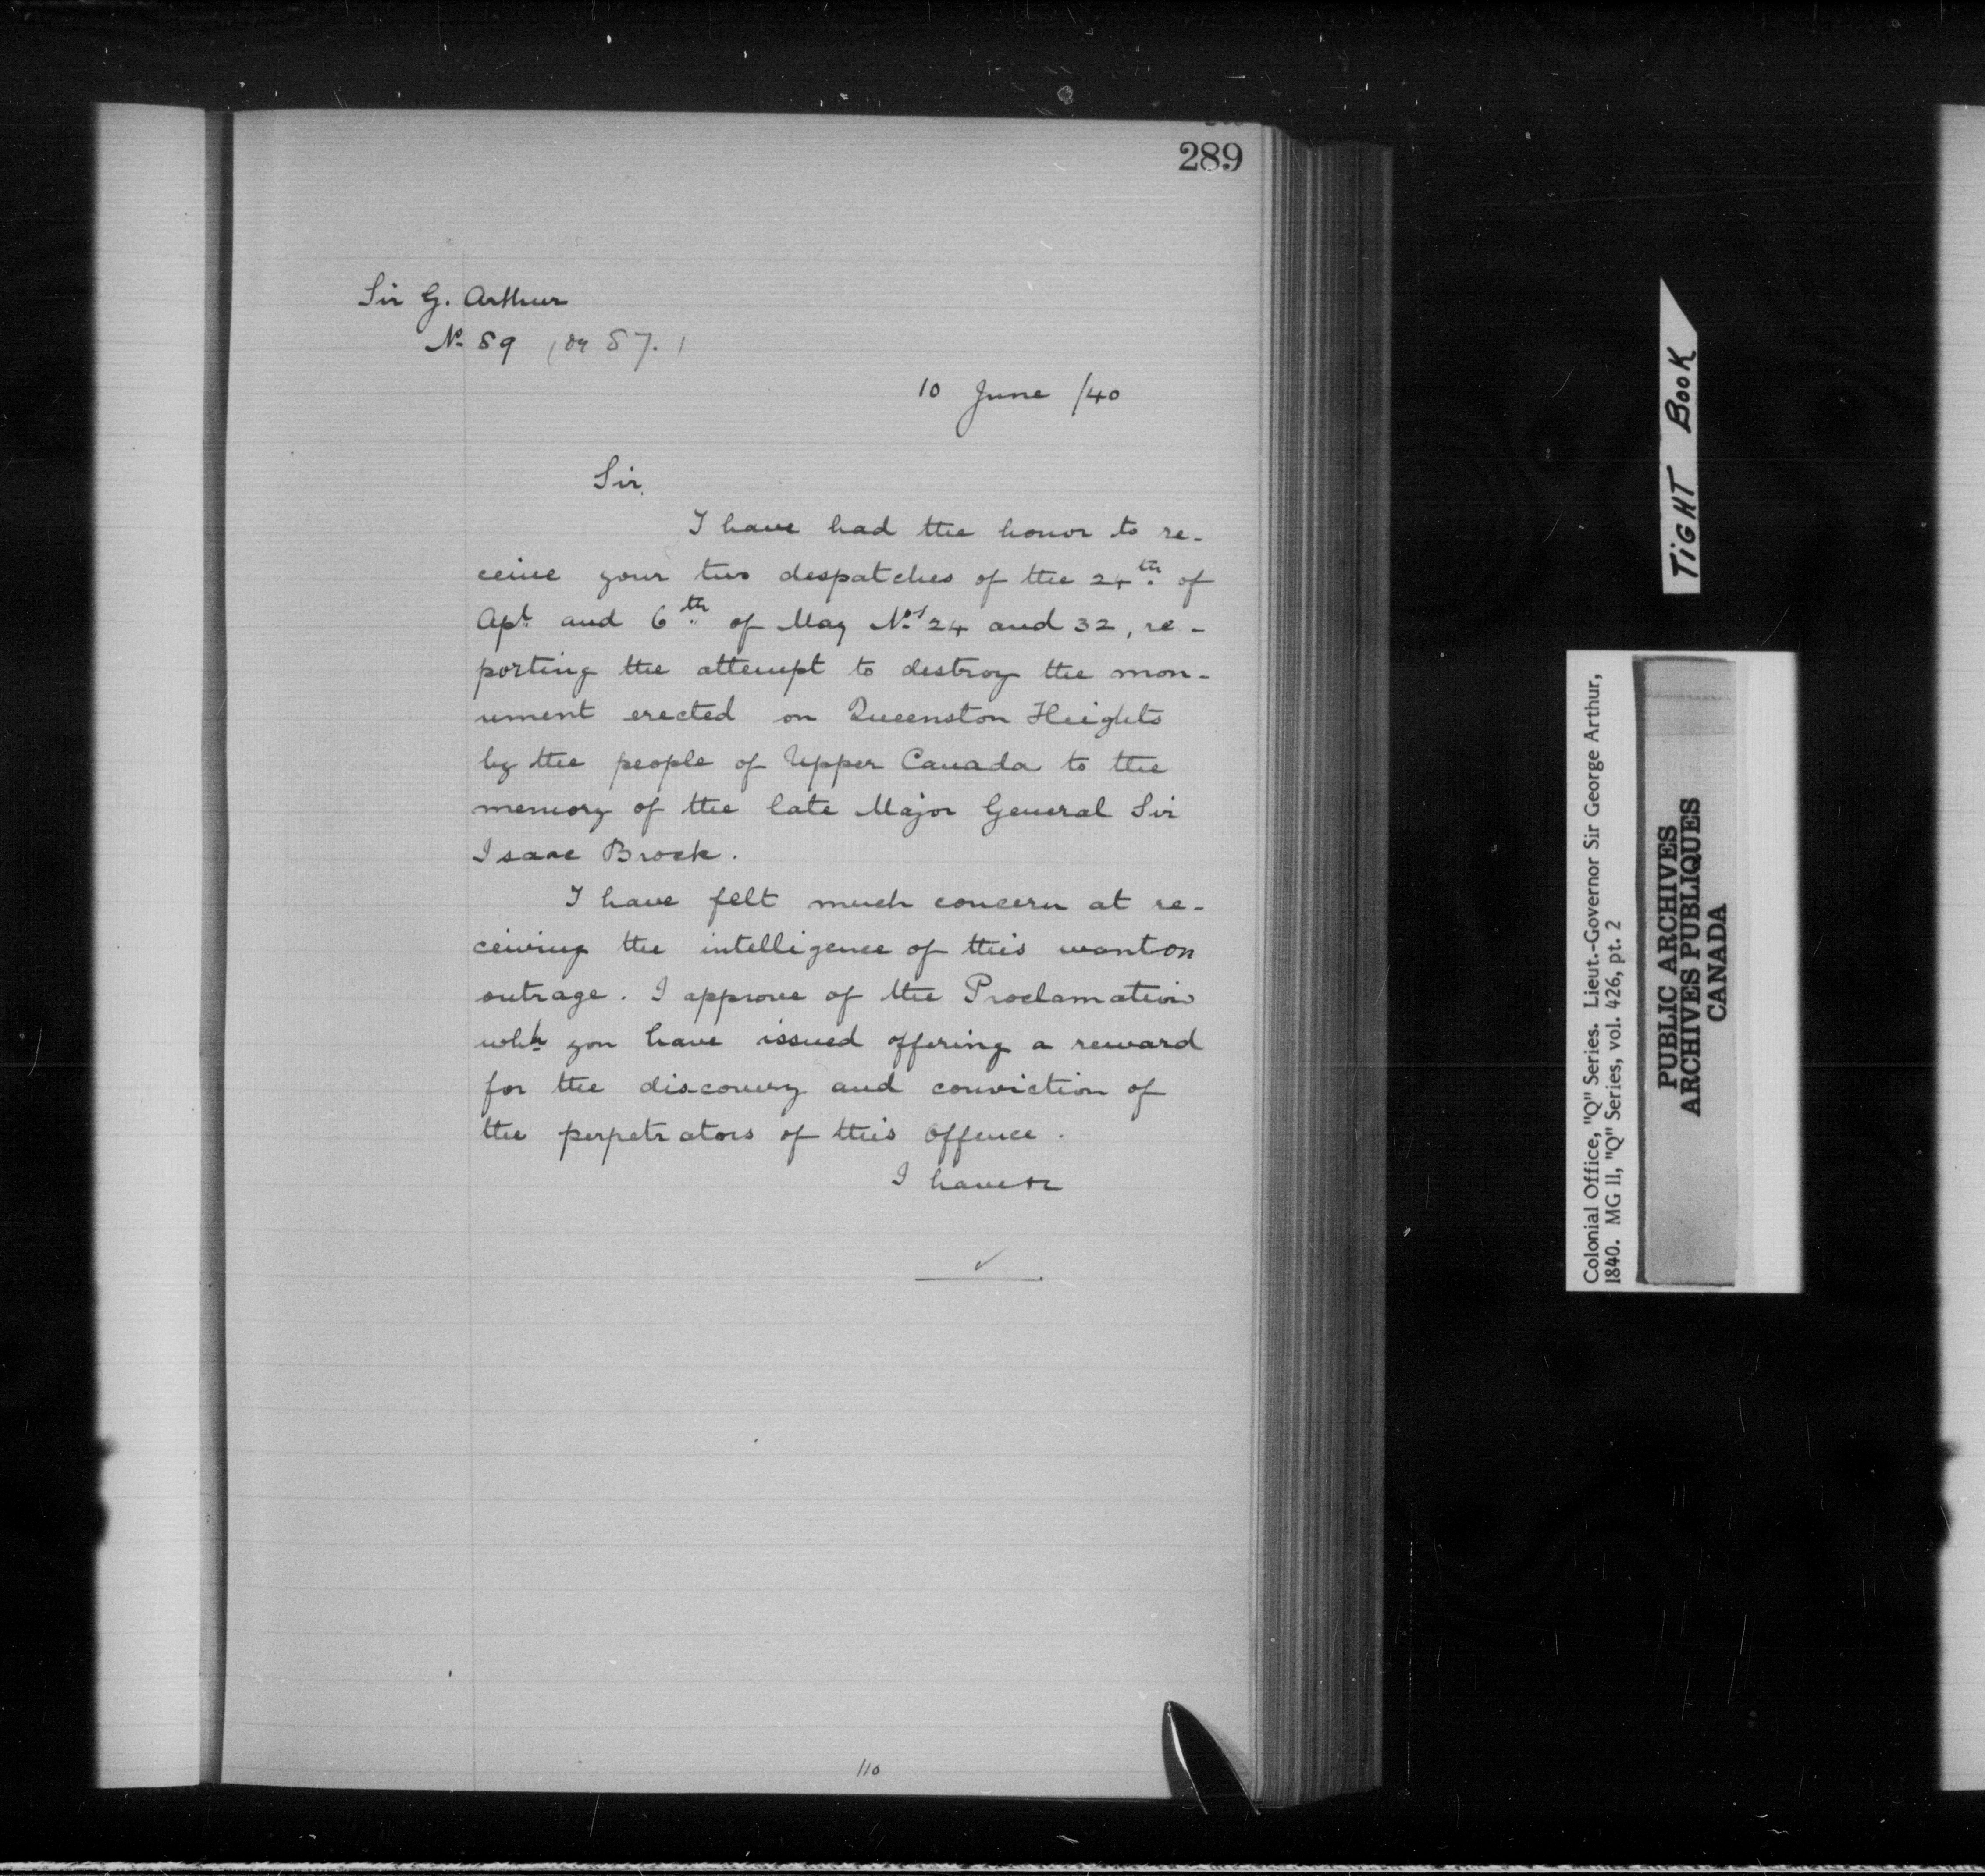 289
Sir G. Arthur
No. 89 (or 87.)
10 June /40
Sir,
I have had the honor to re-
ceive your two despatches of the 24th of
Apl. and 6th of May Nos 24 and 32, re-
porting the attempt to destroy the mon-
ument erected on Queenston Heights
by the people of Upper Canada to the
memory of the late Major General Sir
Isaac Brock.
I have felt much concern at re-
ceiving the intelligence of this wanton
outrage. I approve of the Proclamation
which you have issued offering a reward
for the discovery and conviction of
the perpetrators of this offence.
I have &c
110
TIGHT BOOK
Colonial Office, "Q" Series. Lieut.-Governor Sir George Arthur,
1840. MG 11, "Q" Series, vol. 426, pt. 2
PUBLIC ARCHIVES
ARCHIVES PUBLIQUES
CANADA